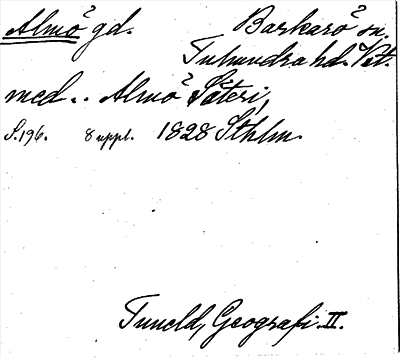 Almö gd. Barkarö sn.
Tuhundra hd. Vst.
med.. Almö Säteri,
S. 196. 8 uppl. 1828 Sthlm.
Tuneld, Geografi II.